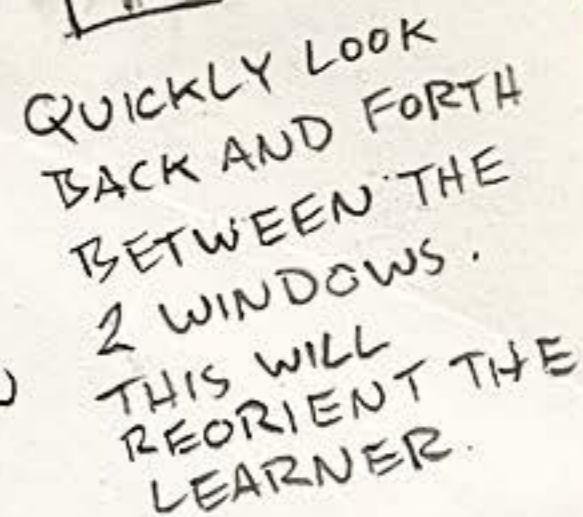 QUICKLY LOOK
BACK AND FORTH
BETWEEN THE
2 WINDOWS.
THIS WILL
REORIENT THE
LEARNER.